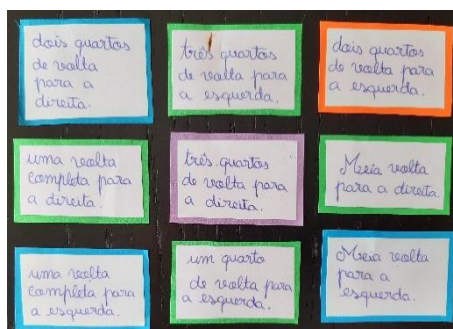 dois quartos
de volta
para a
direita.
três quartos
de volta para
a esquerda.
dois quartos
de volta para
a esquerda.
uma volta
completa para
a direita.
três quartos
de volta para
a direita.
Meia volta
para a direita.
uma volta
completa para
a esquerda.
um quarto
de volta para
a esquerda.
Meia volta
para a
esquerda.